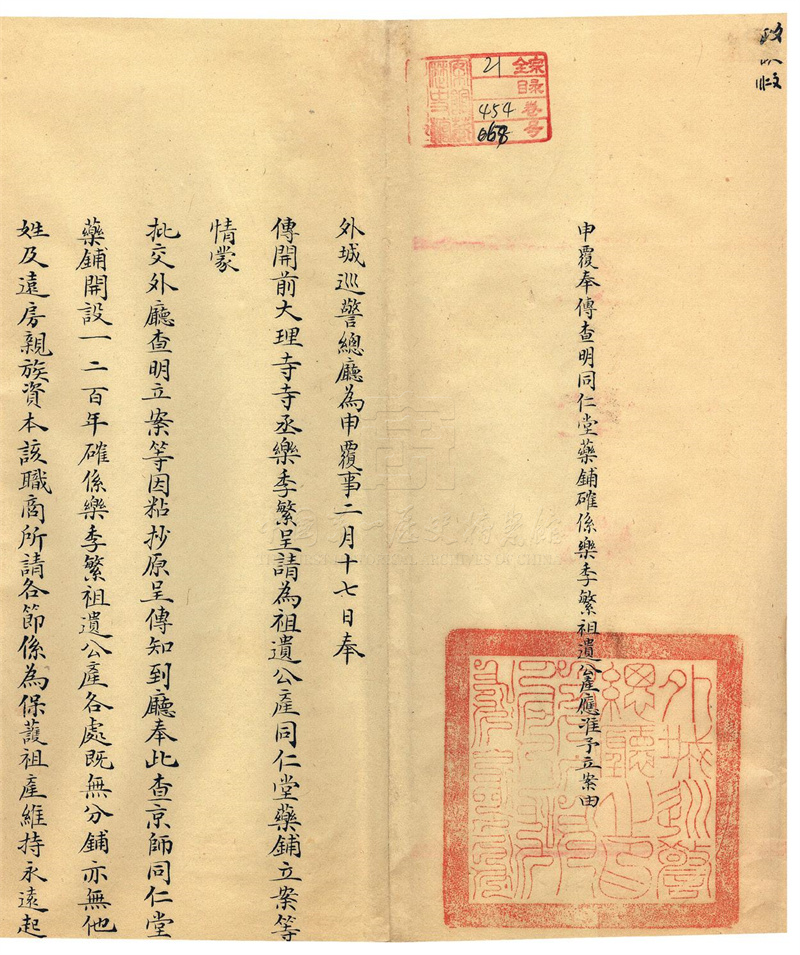 申覆奉傳查明同仁堂藥鋪確係樂季繁祖遺公產應准予立案由
全宗
目錄
卷号
21
454
668
外城巡警總廳之印
外城巡警總廳為申覆事二月十七日奉
傳開前大理寺寺丞樂季繁呈請為祖遺公產同仁堂藥鋪立案等
情蒙
批交外廳查明立案等因粘抄原呈傳知到廳奉此查京師同仁堂
藥鋪開設一二百年確係樂季繁祖遺公產各處既無分鋪亦無他
姓及遠房親族資本該職商所請各節係為保護祖產維持永遠起